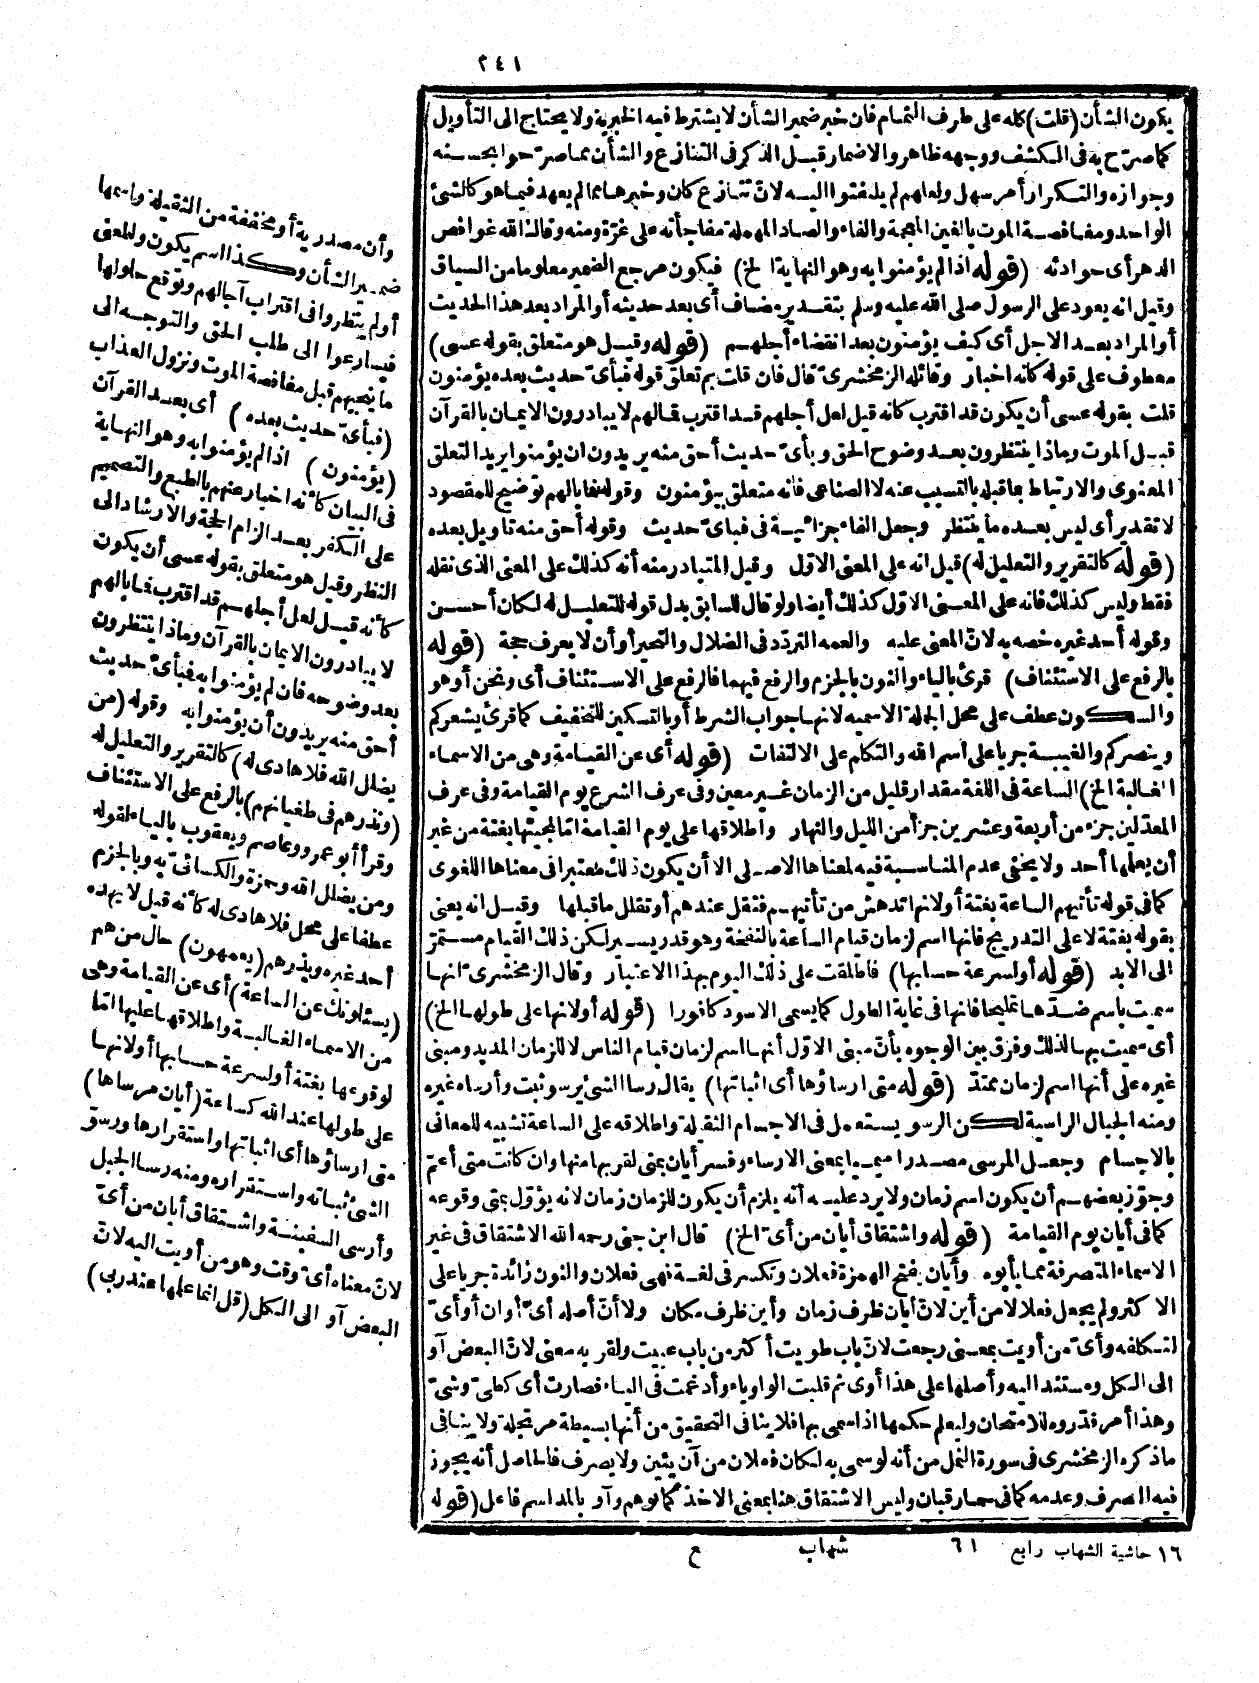 ٢٤١
يكون الشأن (قلت) كله على طرف التمام فان خبر ضمير الشأن لا يشترط فيه الخبرية ولا يحتاج الى التأويل
كما صرّح به فى الكشف ووجهه ظاهر والاضمار قبل الذكر فى التنازع والشأن مما صرّحوا بحسنه
وجوازه والتكرار أمر سهل ولعلهم لم يلتفتوا اليه لانّ تنازع كان وخبرها مما لم يعهد فيما هو كالشئ
الواحد ومغافصة الموت بالغين المعجمة والفاء والصاد المهملة مفاجأته على غرّة ومنه وقاك الله غوافص
الدهر أى حوادثه (قوله اذا لم يؤمنوا به وهو النهاية الخ) فيكون مرجع الضمير معلوما من السياق
وقيل انه يعود على الرسول صلى الله عليه وسلم بتقدير مضاف أى بعد حديثه أو المراد بعد هذا الحديث
أو المراد بعد الاجل أى كيف يؤمنون بعد انقضاء أجلهم (قوله وقيل هو متعلق بقوله عسى)
معطوف على قوله كانه اخبار وقائله الزمخشرىّ قال فان قلت بم تعلق قوله فبأىّ حديث بعده يؤمنون
قلت بقوله عسى أن يكون قد اقترب كانه قيل لعل أجلهم قد اقترب فمالهم لا يبادرون الايمان بالقرآن
قبل الموت وماذا ينتظرون بعد وضوح الحق وبأىّ حديث أحق منه يريدون ان يؤمنوا يريد التعلق
المعنوى والارتباط بما قبله بالتسبب عنه لا الصناعى فانه متعلق بيؤمنون وقوله فما بالهم توضيح للمقصود
لا تقدير أى ليس بعده ما ينتظر وجعل الفاء جزائية فى فبأىّ حديث وقوله أحق منه تاويل بعده
(قوله كالتقرير والتعليل له) قيل انه على المعنى الاوّل وقيل المتبادر منه أنه كذلك على المعنى الذى نقله
فقط وليس كذلك فانه على المعنى الاوّل كذلك أيضا ولو قال للسابق بدل قوله للتعليل له لكان أحسن
وقوله أحد غيره خصه به لانّ المعنى عليه والعمه التردّد فى الضلال والتحير أو أن لا يعرف حجة (قوله
بالرفع على الاستئناف) قرئ بالياء والنون بالجزم والرفع فيهما فالرفع على الاستئناف أى ونحن أو هو
والسكون عطف على محل الجملة الاسميه لانها جواب الشرط أو بالتسكين للتخفيف كما قرئ يشعركم
وينصركم والغيبة جريا على اسم الله والتكلم على الالتفات (قوله أى عن القيامة وهى من الاسماء
الغالبة الخ) الساعة فى اللغة مقدار قليل من الزمان غير معين وفى عرف الشرع يوم القيامة وفى عرف
المعدّلين جزء من أربعة وعشرين جزأ من الليل والنهار واطلاقها على يوم القيامة امّا لمجيئها بغتة من غير
أن يعلمها أحد ولا يخفى عدم المناسبة فيه لمعناها الاصلى الا أن يكون ذلك معتبرا فى معناها اللغوى
كما فى قوله تأتيهم الساعة بغتة أو لانها تدهش من تأتيهم فتقل عندهم أو تقلل ما قبلها وقيل انه يعنى
بقوله بغتة لا على التدريج فانها اسم لزمان قيام الساعة بالنفخة وهو قدر يسير لكن ذلك القيام مستمرّ
الى الابد (قوله أو لسرعة حسابها) فاطلقت على ذلك اليوم بهذا الاعتبار وقال الزمخشرىّ انها
سميت باسم ضدّها تمليحا فانها فى غاية الطول كما يسمى الاسود كافورا (قوله أو لانها على طولها الخ)
أى سميت بها لذلك وفرق بين الوجوه بأنّ مبنى الاوّل أنها اسم لزمان قيام الناس لا للزمان المديد ومبنى
غيره على أنها اسم لزمان ممتدّ (قوله متى ارساؤها أى اثباتها) يقال رسا الشئ يرسو ثبت وأرساه غيره
ومنه الجبال الراسية لكن الرسو يستعمل فى الاجسام الثقيلة واطلاقه على الساعة تشبيه للمعانى
بالاجسام وجعل المرسى مصدرا ميميا بمعنى الارساء وفسر أيان بمتى لقربها منها وان كانت متى أعمّ
وجوّز بعضهم أن يكون اسم زمان ولا يرد عليه أنه يلزم أن يكون للزمان زمان لانه يؤوّل بمتى وقوعه
كما فى أيان يوم القيامة (قوله واشتقاق أيان من أىّ الخ) قال ابن جنى رحمه الله الاشتقاق فى غير
الاسماء المتصرفة مما يأبوه وأيان بفتح الهمزة فعلان وتكسر فى لغة فهى فعلان والنون زائدة جريا على
الاكثر ولم يجعل فعلالا من أين لانّ أيان ظرف زمان وأين ظرف مكان ولا أنّ أصله أىّ أوان أو أىّ
لتكلفه وأىّ من أويت بمعنى رجعت لانّ باب طويت أكثر من باب عييت ولقربه معنى لانّ البعض آو
الى الكل ومستند اليه وأصلها على هذا أوى ثم قلبت الواو ياء وأدغمت فى الياء فصارت أى كطىّ وشىّ
وهذا أمر قدّروه للامتحان وليعلم حكمها اذا سمى بها فلا ينافى التحقيق من أنها بسيطة مرتجلة ولا ينافى
ما ذكره الزمخشرى فى سورة النمل من أنه لو سمى به لكان فعلان من آن يئين ولا يصرف فالحاصل أنه يجوز
فيه الصرف وعدمه كما فى حمار قبان وليس الاشتقاق هنا بمعنى الاخذ كما توهم وآو بالمد اسم فاعل (قوله
وأن مصدرية أو مخففة من الثقيلة واسمها
ضمير الشأن وكذا اسم يكون والمعنى
أولم ينظروا فى اقتراب آجالهم وتوقع حلولها
فيسارعوا الى طلب الحق والتوجه الى
ما ينجيهم قبل مغافصة الموت ونزول العذاب
(فبأىّ حديث بعده) أى بعد القرآن
(يؤمنون) اذا لم يؤمنوا به وهو النهاية
فى البيان كأنه اخبار عنهم بالطبع والتصميم
على الكفر بعد الزام الحجة والارشاد الى
النظر وقيل هو متعلق بقوله عسى أن يكون
كأنه قيل لعل أجلهم قد اقترب فما بالهم
لا يبادرون الايمان بالقرآن وماذا ينتظرون
بعد وضوحه فان لم يؤمنوا به فبأىّ حديث
أحق منه يريدون أن يؤمنوا به وقوله (من
يضلل الله فلا هادى له) كالتقرير والتعليل له
(ونذرهم فى طغيانهم) بالرفع على الاستئناف
وقرأ أبو عمرو وعاصم ويعقوب بالياء لقوله
ومن يضلل الله وحمزة والكسائىّ به وبالجزم
عطفا على محل فلا هادى له كأنه قيل لا يهده
أحد غيره ويذرهم (يعمهون) حال من هم
(يسئلونك عن الساعة) أى عن القيامة وهى
من الاسماء الغالبة واطلاقها عليها امّا
لوقوعها بغتة أو لسرعة حسابها أو لانها
على طولها عند الله كساعة (أيان مرساها)
متى ارساؤها أى اثباتها واستقرارها ورسوّ
الشئ ثباته واستقراره ومنه رسا الجبل
وأرسى السفينة واشتقاق أيان من أىّ
لانّ معناه أىّ وقت وهو من أويت اليه لانّ
البعض آو الى الكل (قل انما علمها عند ربى)
١٦ حاشية الشهاب رابع ٦١ شهاب ع